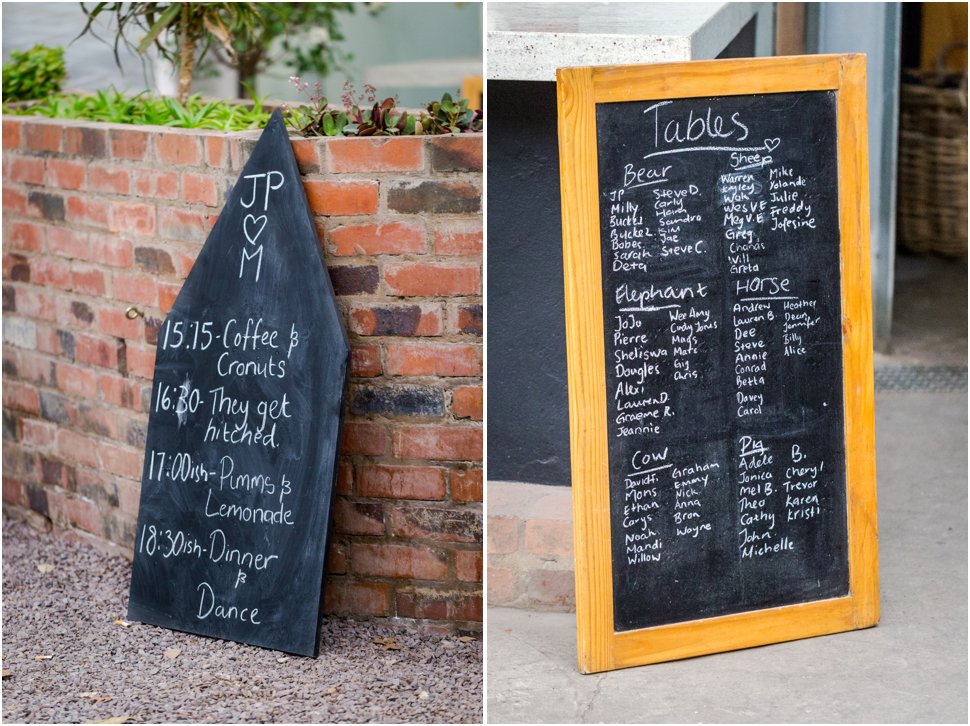 JP
♡
M
15:15-Coffee &
Cronuts
16:30-They get
hitched.
17:00ish-Pimms &
Lemonade
18:30ish-Dinner
&
Dance
Tables
Bear
JP
Milly
Bucke1
Bucke2
Bobes
Sarah
Deta
Steve D.
Carly
Sandra
Kim
Jae
Steve C.
Sheep
Warren
Wok
Wes V.E
Meg V.E
Greg
Will
Greta
Mike
Yolande
Julie
Freddy
Elephant
JoJo
Pierre
Sheliswa
Dougles
Alexi
Lauren D.
Graeme R.
Jeannie
Wee Amy
Cudy Jones
Mags
Matt
Gig
Chris
Horse
Andrew
Lauren B.
Dee
Steve
Annie
Conrad
Betta
Davey
Carol
Heather
Dean
Jennifer
Billy
Alice
Cow
Mons
Ethan
Carys
Noah
Mandi
Willow
Graham
Emmy
Nick
Anna
Bron
Wayne
Pig
Adele
Jonica
Mel B.
Theo
Cathy
John
Michelle
B.
Cheryl
Trevor
Karen
Kristi